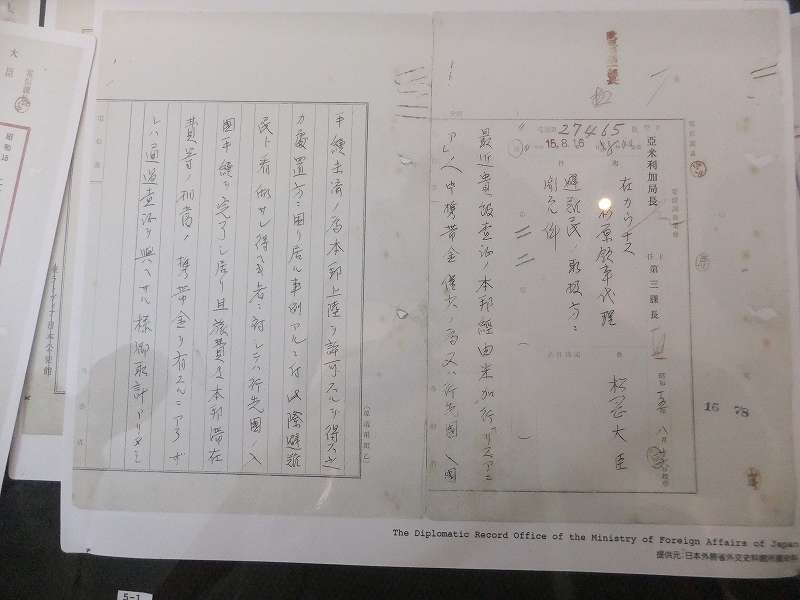 亜米利加局長
第三課長
電信課長
27465
15.8.16
昭和 八月
松岡大臣
在カウナス
杉原領事代理
避難民ノ取扱方ニ
関スル件
最近貴館査証ノ本邦経由米加行「リスアニ
ア」人中携帯金僅少ノ為又ハ行先国ノ入国
手続未済ノ為本邦上陸ヲ許可スルヲ得ス之
カ処置方ニ困リ居ル事例アルニ付此際避難
民ト看做サレ得ヘキ者ニ対シテハ行先国ノ入
国手続ヲ完了シ居リ且旅費及本邦滞在
費等ノ相当ノ携帯金ヲ有スルニアラサ
レハ通過査証ヲ与ヘサル様御取計アリタシ
16 78
The Diplomatic Record Office of the Ministry of Foreign Affairs of Japan
提供元:日本外務省外交史料館所蔵史料
5-1